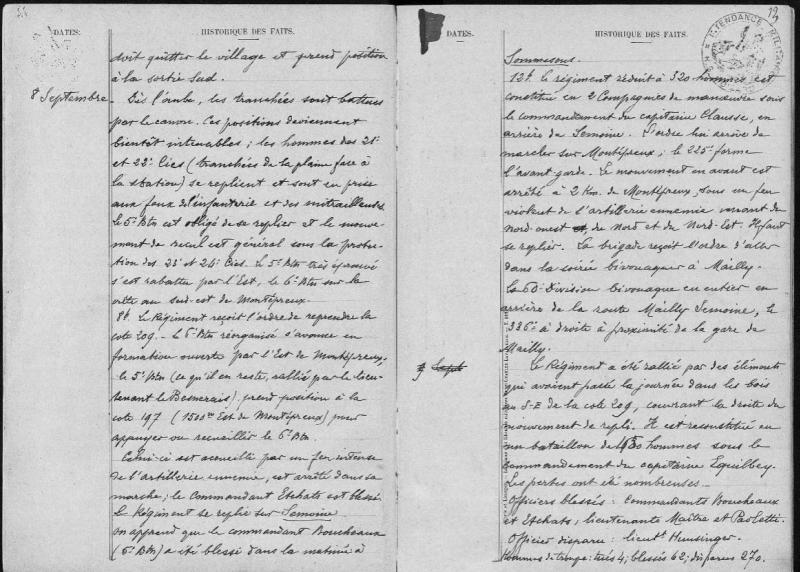 DATES:
HISTORIQUE DES FAITS.
doit quitter le village et prend position
à la sortie Sud.
8 Septembre
Dès l'aube, les tranchées sont battues
par le canon. Ces positions deviennent
bientôt intenables ; les hommes des 21e
et 23e Cies (tranchées de la plaine face à
la station) se replient et sont en prise
aux feux de l'infanterie et des mitrailleuses.
le 5e Btn est obligé de se replier et le mouve-
ment de recul est général sous la protec-
tion des 23e et 24e Cies. Le 5e Btn très éprouvé
s'est rabattu par l'Est, le 6e Btn sur la
crête au sud-est de Montépreux.
8h. Le Régiment reçoit l'ordre de reprendre la
cote 209. - Le 6e Btn réorganisé s'avance en
formation ouverte par l'Est de Montépreux,
le 5e Btn (ce qu'il en reste, rallié par le lieu-
tenant le Besnerais) prend position à la
cote 197 (1500m Est de Montépreux) pour
appuyer ou recueillir le 6e Btn.
Celui-ci est accueilli par un feu intense
de l'artillerie ennemie, est arrêté dans sa
marche ; le Commandant Etchats est blessé.
Le Régiment se replie sur Semoine.
On apprend que le commandant Boucheaux
(5e Btn) a été blessé dans la matinée à
13
DATES.
HISTORIQUE DES FAITS.
INTENDANCE MILITAIRE
Sommesous.
12h. Le régiment réduit à 320 hommes est
constitué en 2 Compagnies de manœuvre sous
le commandement du capitaine Clausse, en
arrière de Semoine. L'ordre lui arrive de
marcher sur Montépreux ; le 225e forme
l'avant-garde. Le mouvement en avant est
arrêté à 2 Km. de Montépreux, sous un feu
violent de l'artillerie ennemie venant du
Nord-ouest et, du Nord et du Nord-Est. Il faut
se replier. La brigade reçoit l'ordre d'aller
dans la soirée bivouaquer à Mailly.
La 60e Division bivouaque en entier en
arrière de la route Mailly Semoine, le
336e à droite à proximité de la gare de
Mailly.
9 Sept
Le Régiment a été rallié par des éléments
qui avaient passé la journée dans les bois
au S-E de la cote 209, couvrant la droite du
mouvement de repli. Il est reconstitué en
un bataillon de 450 hommes sous le
commandement du capitaine Equilbey.
Les pertes ont été nombreuses -
Officiers blessés : Commandants Boucheaux
et Etchats ; lieutenants Maître et Paoletti.
Officier disparu : lieutt Hunsinger.
Hommes de troupe : tués 4 ; blessés 62 ; disparus 270.